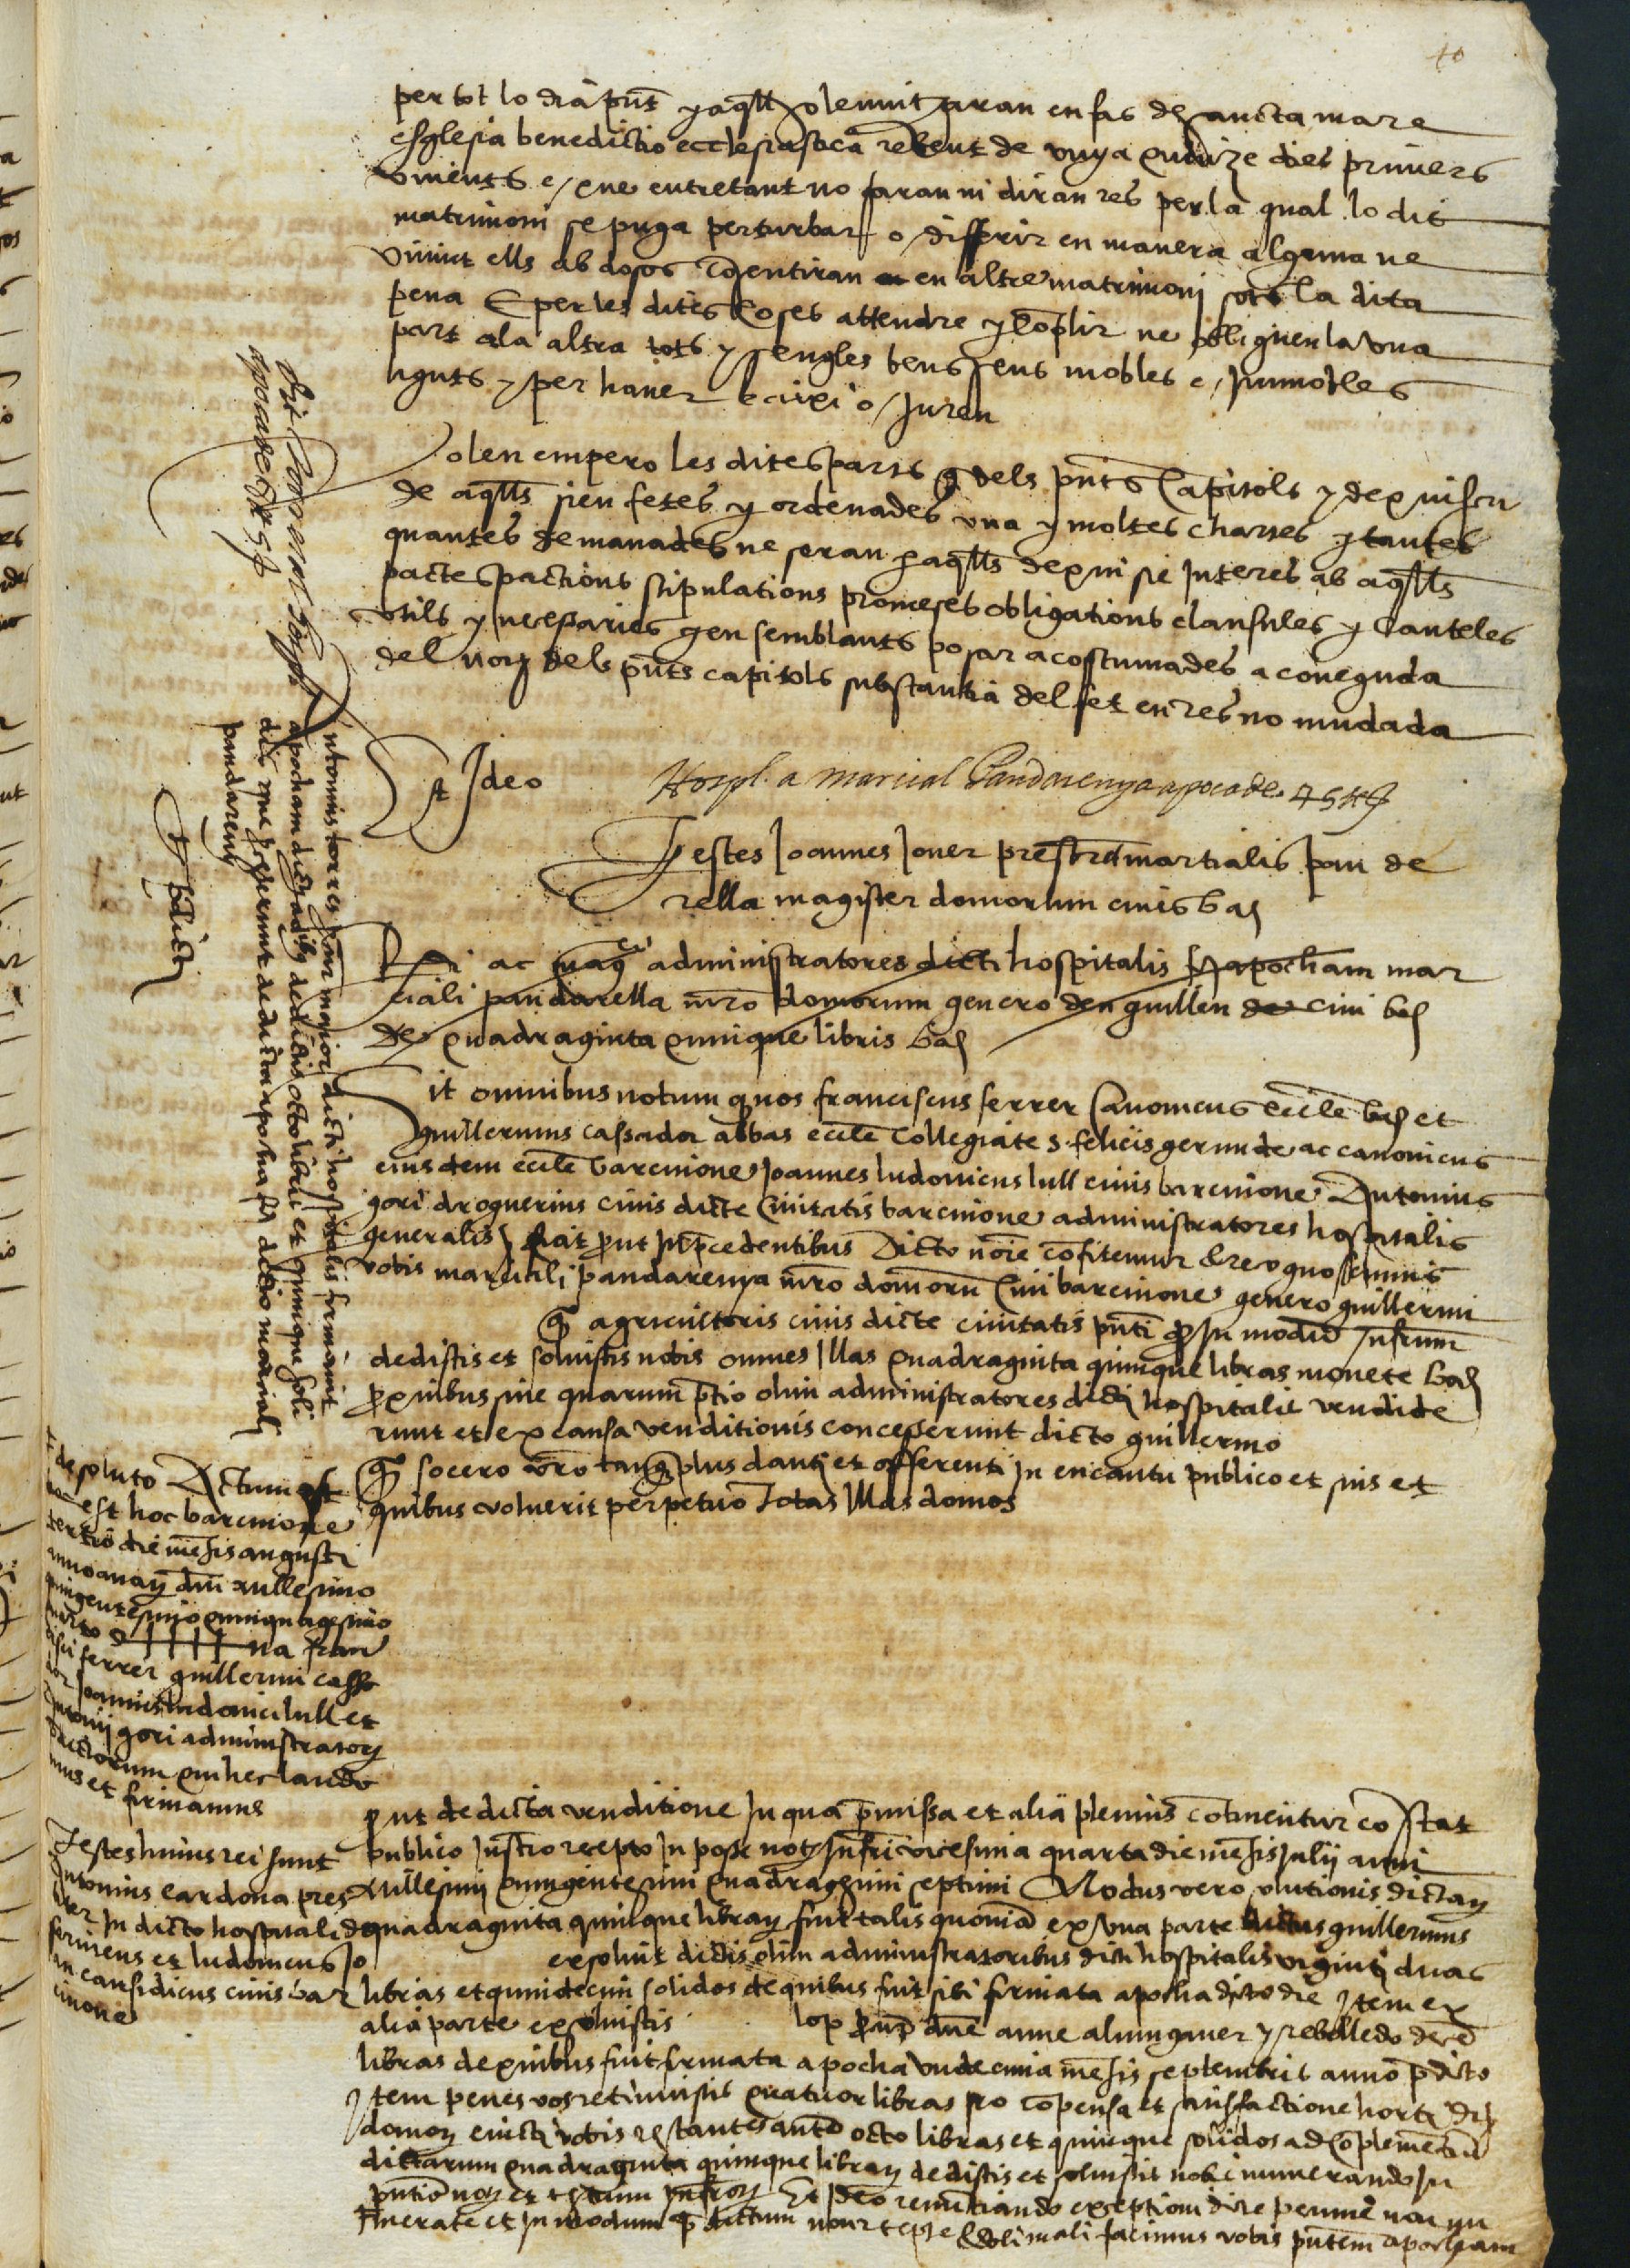 10
per tot lo dia pnt y aqll solemnitzaran en fas de sancta mare
esglesia benedictio ecclesiastica rebent de vuy a quinze dies primers
vinents e que entretant no faran ni diran res per la qual lo dit
matrimoni se puga perturbar o differir en manera alguna ne
vivint ells abdosos cosentiran en altre matrimoni sots la dita
pena E per les dites coses attendre y coplir ne obliguen la vna
part a la altra tots y sengles bens seus mobles e Immobles
haguts y per haver e axi o Juren
Volen empero les dites parts q dels pnts Capitols y de quiscu
de aqlls sien fetes y ordenades vna y moltes chartes y tantes
quantes demanades ne seran p aqlls de qui sie Interes ab aqlls
pactes pactions stipulations promeses obligations clausules y Cauteles
vtils y necessaries y en semblants posar acostumades a coneguda
del not dels pnts capitols substantia del fet en res no mudada
Et Ideo
Hospl. a Marcial Pandarenya apoca de 45 ll
Testes Joannes Joner presbr martialis pan de
rella magister domorum civis bar
ac mag administratores dicti hospitalis apocham mar
ciali pandarella mro domorum genero den guillen civi bar
de quadraginta quinque libris bar
Sit omnibus notum q nos franciscus ferrer Canonicus eccle bar et
guillermus cassador abbas eccle Collegiate s. felicis gerunde ac canonicus
eiusdem eccle barcinone Joannes ludovicus lull civis barcinone Antonius
gori droguerius civis dicte Civitatis barcinone administratores hospitalis
generalis put In pcedentibus Dicto noie cofitemur & recognoscimus
vobis martiali pandarenya mro domoru Civi barcinone genero guillermi
q agricultoris civis dicte civitatis pnti q In modu Infrum
dedistis et solvistis nobis omnes Illas quadraginta quinque libras monete bar
p quibus sive quarum ptio olim administratores dicti hospitalis vendide
runt et ex causa venditionis concesserunt dicto guillermo
q socero vro tanq plus danti et offerenti In encantu publico et suis et
quibus voluerit perpetuo Totas Illas domos
put de dicta venditione In qua pmissa et alia plenius cotinentur constat
publico Instro recepto In posse not Infri vicesima quarta die mesis Julii anni
Millesimi quingentesimi quadragesimi septimi Modus vero solutionis dictar
quadraginta quinque librar fuit talis quonia ex vna parte dictus guillermus
exolvit dictis olim administratoribus dicti hospitalis viginti duas
libras et quindecim solidos de quibus fuit sibi firmata apocha dicto die Item ex
alia parte exolvistis lop dne anne y rebolledo dece
libras de quibus fuit firmata apocha vndecima mesis septembris anno pdicto
Item penes vos retinuistis quatuor libras pro copensa et satisfactione horti
domor evicti vobis restantes aute octo libras et quinque solidos ad coplementu
dictarum quadraginta quinque librar dedistis et solvistis nobis numerando In
pntia not et testium Infror Et Ideo renuntiando exceptioni dicte pecunie non nu
merate et In modum pdictum non recepte & doli mali facimus vobis pntem apocham
Antonius torres maior dicti hospitalis firmavit
apocham de dictis octo libris et quinque soli
dis que de dicta apocha dicto marciali
pandareny
et de soluto Actum
est hoc barcinone
tertio die mesis augusti
anno a nat dni millesimo
quingentesimo quinquagesimo
quarto na fran
cisci ferrer guillermi cassa
dor Joannis ludovici lull et
Antonii gori administrator
pdictorum qui hec lauda
mus et firmamus
Testes huius rei sunt
Antonius cardona pres
biter In dicto hospitali de
serviens et ludovicus Jo
an causidicus civis bar
cinone